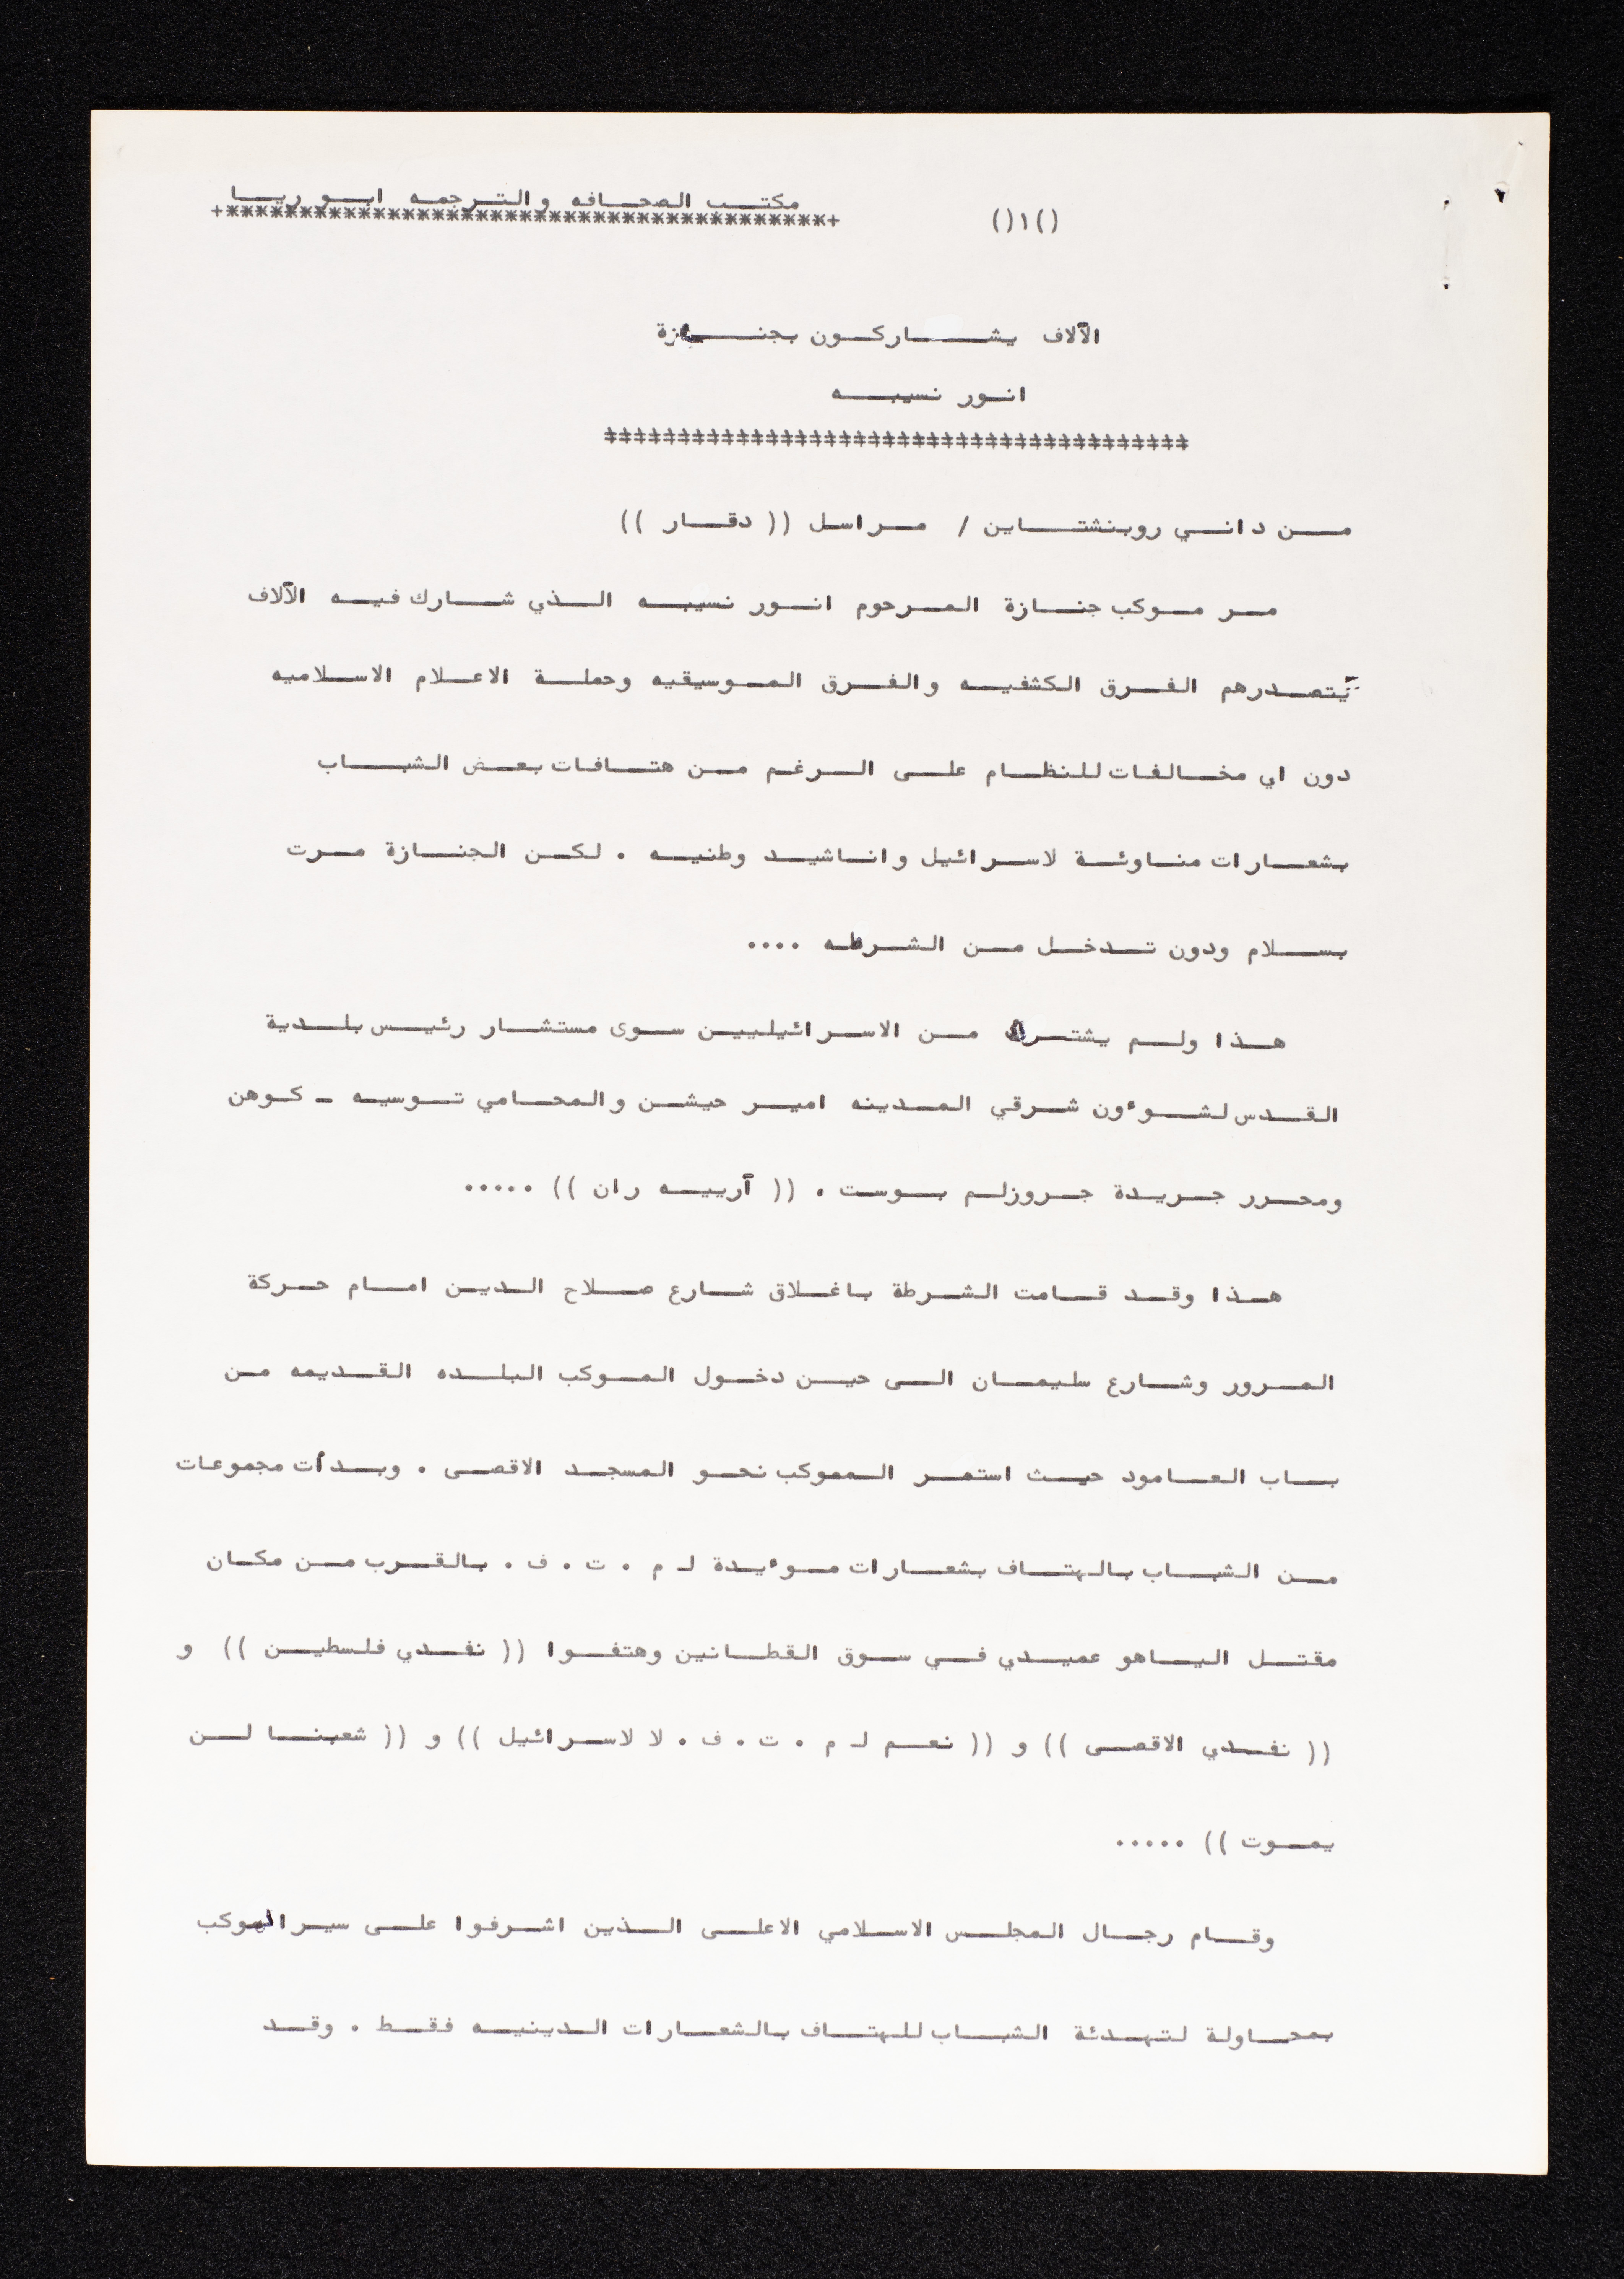 مكتب الصحافه والترجمه ابو ريا
+*****************************************+
()١()
الآلاف يشاركون بجنازة
انور نسيبه
‡‡‡‡‡‡‡‡‡‡‡‡‡‡‡‡‡‡‡‡‡‡‡‡‡‡‡‡‡‡‡‡‡‡‡‡‡‡‡‡
من داني روبنشتاين / مراسل (( دقار ))
مر موكب جنازة المرحوم انور نسيبه الذي شارك فيه الآلاف
يتصدرهم الفرق الكشفيه والفرق الموسيقيه وحملة الاعلام الاسلاميه
دون اي مخالفات للنظام على الرغم من هتافات بعض الشباب
بشعارات مناوئة لاسرائيل واناشيد وطنيه . لكن الجنازة مرت
بسلام ودون تدخل من الشرطه ....
هذا ولم يشترك من الاسرائيليين سوى مستشار رئيس بلدية
القدس لشوءون شرقي المدينه امير حيشن والمحامي توسيه - كوهن
ومحرر جريدة جروزلم بوست . (( آرييه ران )) .....
هذا وقد قامت الشرطة باغلاق شارع صلاح الدين امام حركة
المرور وشارع سليمان الى حين دخول الموكب البلده القديمه من
باب العامود حيث استمر المموكب نحو المسجد الاقصى . وبدأت مجموعات
من الشباب بالهتاف بشعارات موءيدة لـ م . ت . ف . بالقرب من مكان
مقتل الياهو عميدي في سوق القطانين وهتفوا (( نفدي فلسطين )) و
(( نفدي الاقصى )) و (( نعم لـ م . ت . ف . لا لاسرائيل )) و (( شعبنا لن
يموت )) .....
وقام رجال المجلس الاسلامي الاعلى الذين اشرفوا على سير الموكب
بمحاولة لتهدئة الشباب للهتاف بالشعارات الدينيه فقط . وقد